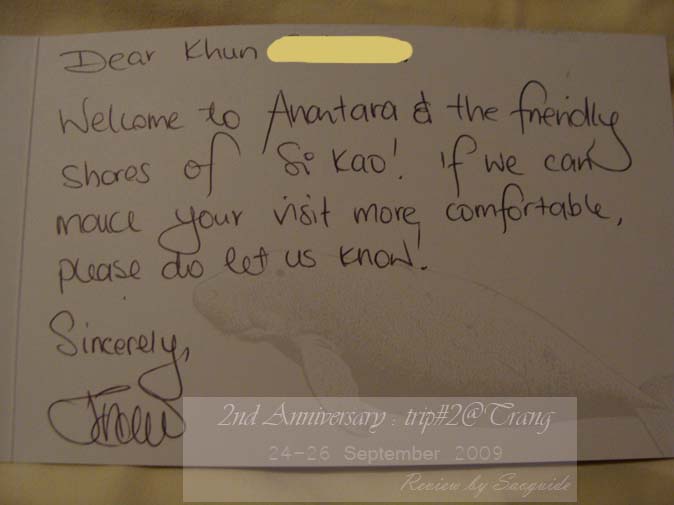 Dear Khun
Welcome to Anantara & the friendly
shores of Si Kao! If we can
make your visit more comfortable,
please do let us know!
Sincerely,
2nd Anniversary : trip#2@Trang
24-26 September 2009
Review by Saoguide